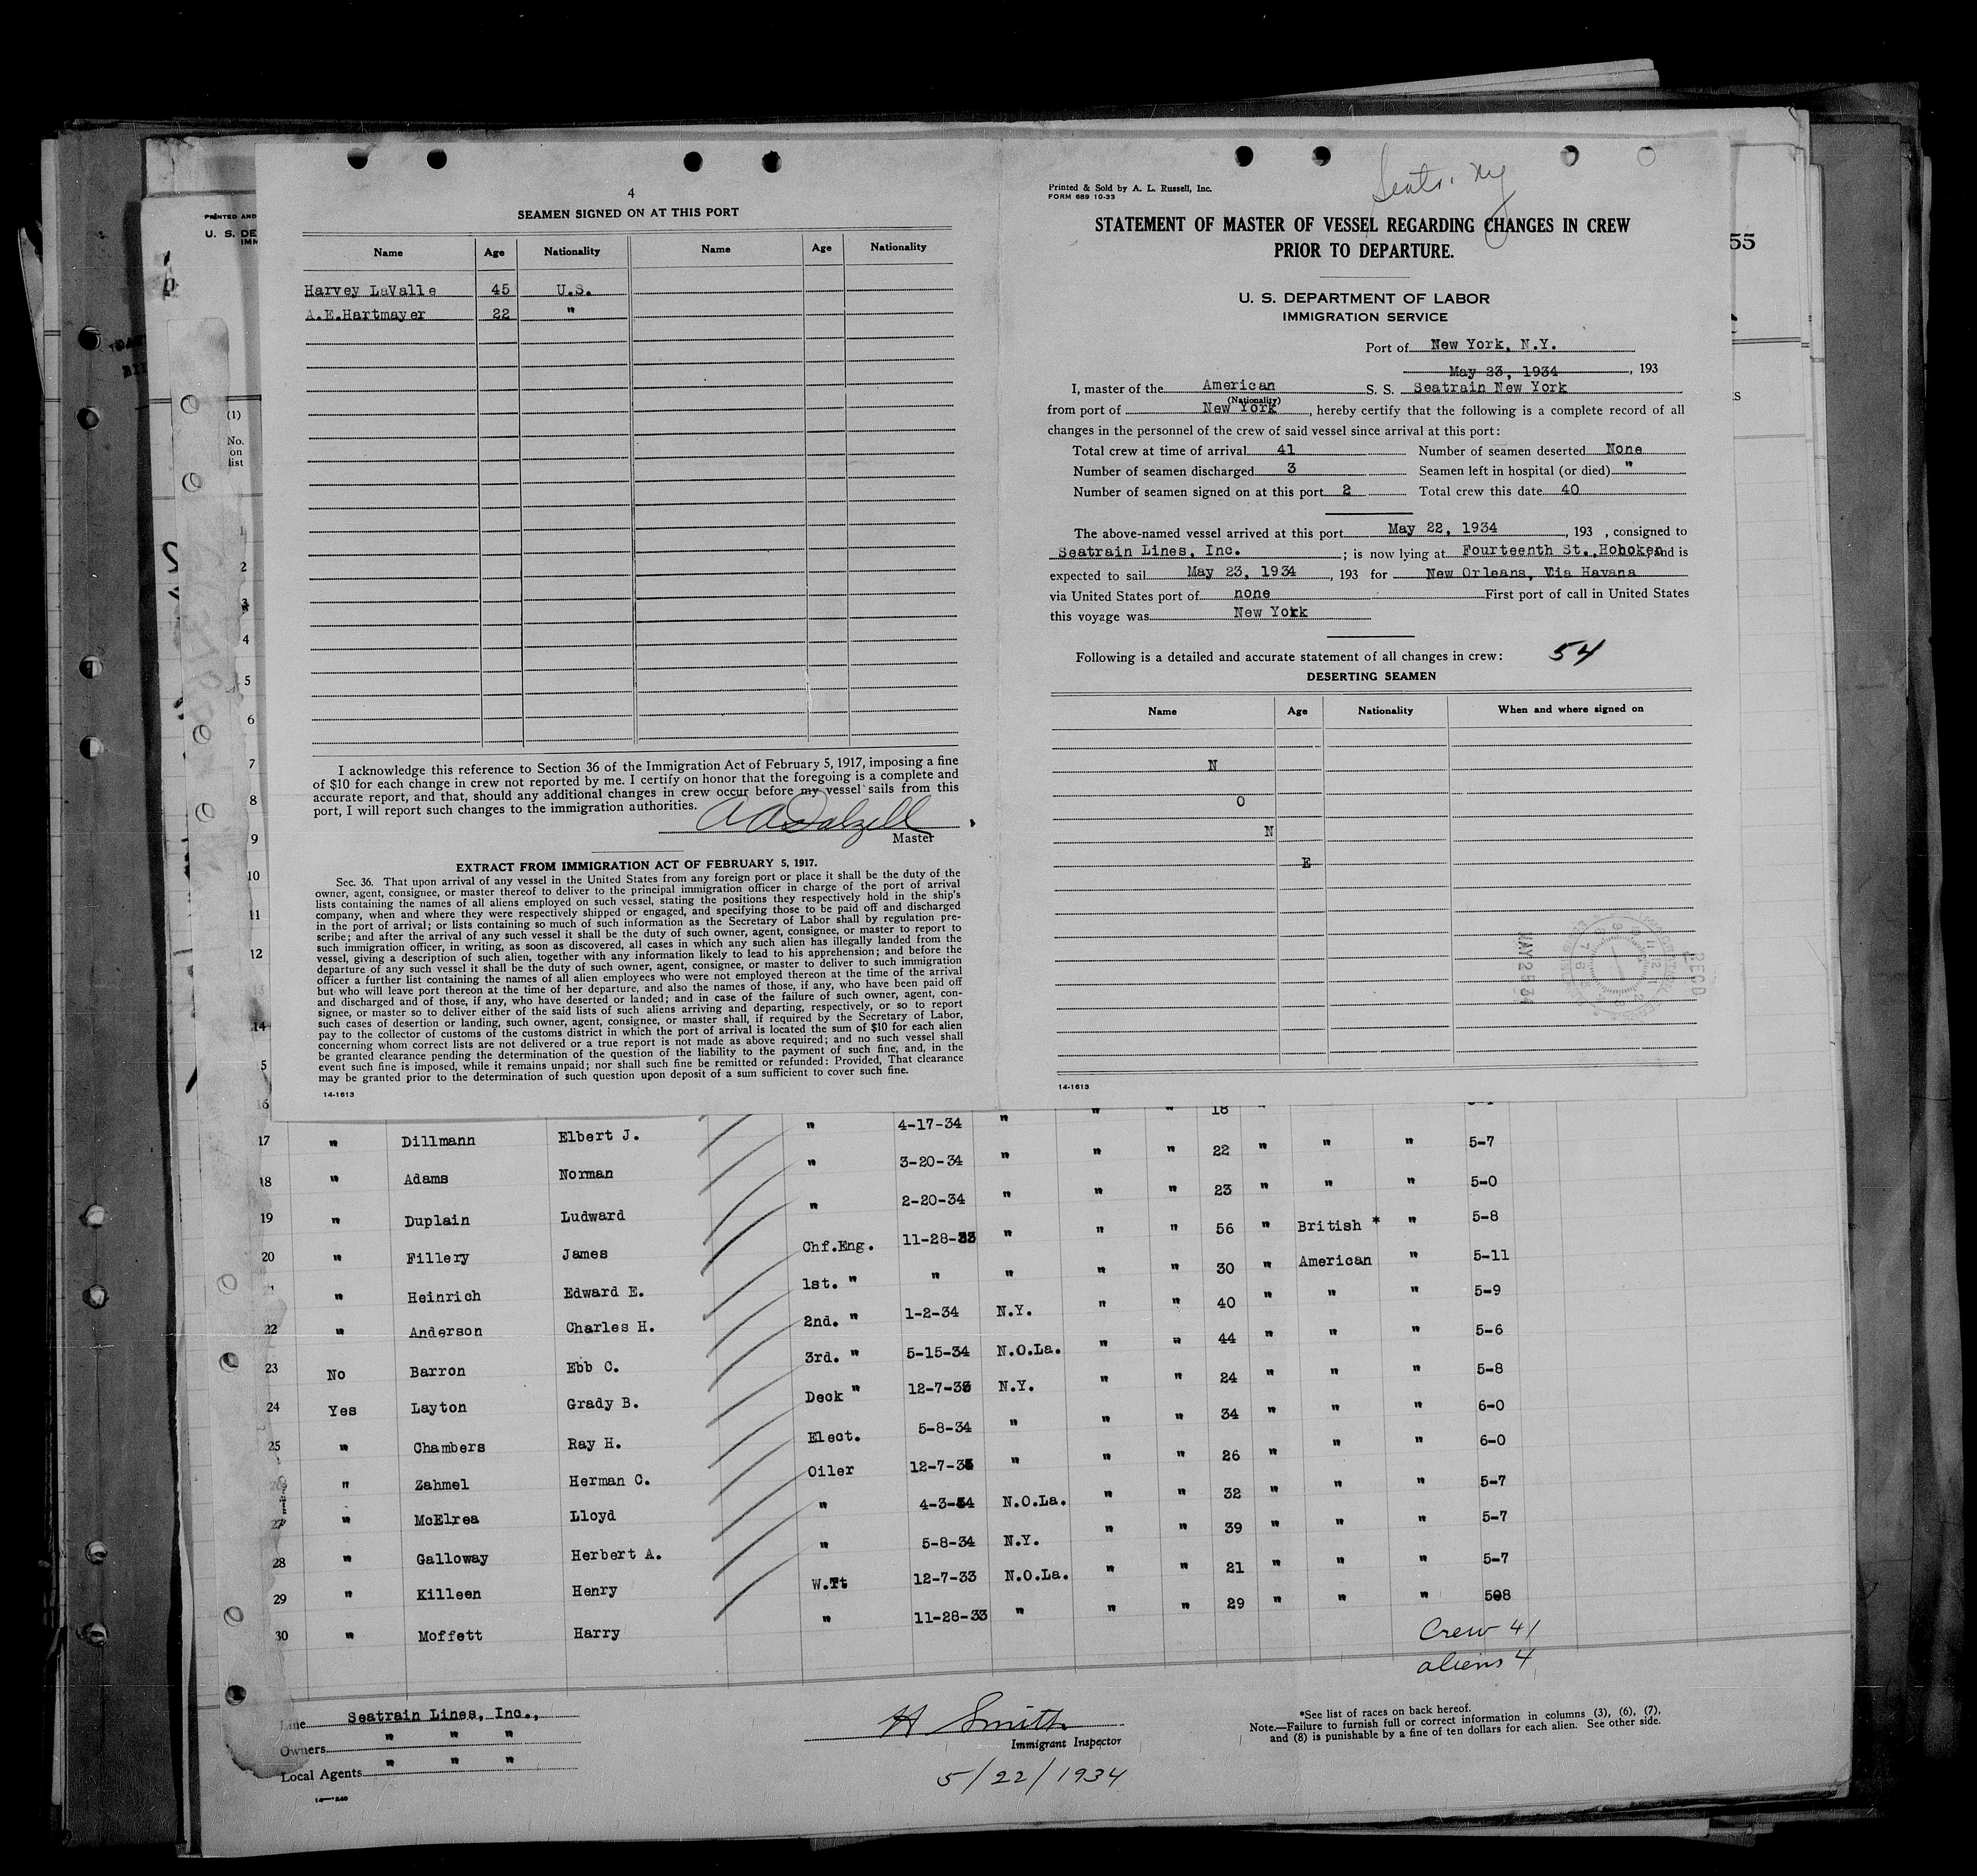 4
SEAMEN SIGNED ON AT THIS PORT
Name Age Nationality Name Age Nationality
Harvey LaValle 45 U.S.
A.E.Hartmayer 22 "
I acknowledge this reference to Section 36 of the Immigration Act of February 5, 1917, imposing a fine
of $10 for each change in crew not reported by me. I certify on honor that the foregoing is a complete and
accurate report, and that, should any additional changes in crew occur before my vessel sails from this
port, I will report such changes to the immigration authorities.
A A Dalzell
Master
EXTRACT FROM IMMIGRATION ACT OF FEBRUARY 5, 1917.
Sec. 36. That upon arrival of any vessel in the United States from any foreign port or place it shall be the duty of the
owner, agent, consignee, or master thereof to deliver to the principal immigration officer in charge of the port of arrival
lists containing the names of all aliens employed on such vessel, stating the positions they respectively hold in the ship's
company, when and where they were respectively shipped or engaged, and specifying those to be paid off and discharged
in the port of arrival; or lists containing so much of such information as the Secretary of Labor shall by regulation pre-
scribe; and after the arrival of any such vessel it shall be the duty of such owner, agent, consignee, or master to report to
such immigration officer, in writing, as soon as discovered, all cases in which any such alien has illegally landed from the
vessel, giving a description of such alien, together with any information likely to lead to his apprehension; and before the
departure of any such vessel it shall be the duty of such owner, agent, consignee, or master to deliver to such immigration
officer a further list containing the names of all alien employees who were not employed thereon at the time of the arrival
but who will leave port thereon at the time of her departure, and also the names of those, if any, who have been paid off
and discharged and of those, if any, who have deserted or landed; and in case of the failure of such owner, agent, con-
signee, or master so to deliver either of the said lists of such aliens arriving and departing, respectively, or so to report
such cases of desertion or landing, such owner, agent, consignee, or master shall, if required by the Secretary of Labor,
pay to the collector of customs of the customs district in which the port of arrival is located the sum of $10 for each alien
concerning whom correct lists are not delivered or a true report is not made as above required; and no such vessel shall
be granted clearance pending the determination of the question of the liability to the payment of such fine, and, in the
event such fine is imposed, while it remains unpaid; nor shall such fine be remitted or refunded: Provided, That clearance
may be granted prior to the determination of such question upon deposit of a sum sufficient to cover such fine.
14-1613
Printed & Sold by A. L. Russell, Inc.
FORM 689 10-33
STATEMENT OF MASTER OF VESSEL REGARDING CHANGES IN CREW
PRIOR TO DEPARTURE.
U. S. DEPARTMENT OF LABOR
IMMIGRATION SERVICE
Port of New York, N.Y.
May 23, 1934, 193
I, master of the American S. S. Seatrain New York
(Nationality)
from port of New York, hereby certify that the following is a complete record of all
changes in the personnel of the crew of said vessel since arrival at this port:
Total crew at time of arrival 41 Number of seamen deserted None
Number of seamen discharged 3 Seamen left in hospital (or died) "
Number of seamen signed on at this port 2 Total crew this date 40
The above-named vessel arrived at this port May 22, 1934, 193 , consigned to
Seatrain Lines, Inc. ; is now lying at Fourteenth St., Hoboken and is
expected to sail May 23, 1934, 193 for New Orleans, Via Havana
via United States port of none First port of call in United States
this voyage was New York
Following is a detailed and accurate statement of all changes in crew: 54
DESERTING SEAMEN
Name Age Nationality When and where signed on
N
O
N
E
RECD
MAY 23 34
14-1613
PRINTED AND
U. S. DE
IMM
55
(1)
No.
on
list
1
2
3
4
5
6
7
8
9
10
11
12
14
5
16 " " " 18 "
17 " Dillmann Elbert J. " 4-17-34 " " " 22 " " " 5-7
18 " Adams Norman " 3-20-34 " " " 23 " " " 5-0
19 " Duplain Ludward " 2-20-34 " " " 56 " British * " 5-8
20 " Fillery James Chf.Eng. 11-28-33 " " " 30 " American " 5-11
" Heinrich Edward E. 1st. " " " " " 40 " " " 5-9
22 " Anderson Charles H. 2nd. " 1-2-34 N.Y. " " 44 " " " 5-6
23 No Barron Ebb C. 3rd. " 5-15-34 N.O.La. " " 24 " " " 5-8
24 Yes Layton Grady B. Deck " 12-7-33 N.Y. " " 34 " " " 6-0
25 " Chambers Ray H. Elect. 5-8-34 " " " 26 " " " 6-0
" Zahmel Herman C. Oiler 12-7-33 " " " 32 " " " 5-7
27 " McElrea Lloyd " 4-3-34 N.O.La. " " 39 " " " 5-7
28 " Galloway Herbert A. " 5-8-34 N.Y. " " 21 " " " 5-7
29 " Killeen Henry W.Tt 12-7-33 N.O.La. " " 29 " " " 508
30 " Moffett Harry " 11-28-33 "
Crew 41
aliens 4
Line Seatrain Lines, Inc.,
Owners " " "
Local Agents " " "
H Smith
Immigrant Inspector
5/22/1934
*See list of races on back hereof.
Note.—Failure to furnish full or correct information in columns (3), (6), (7),
and (8) is punishable by a fine of ten dollars for each alien. See other side.